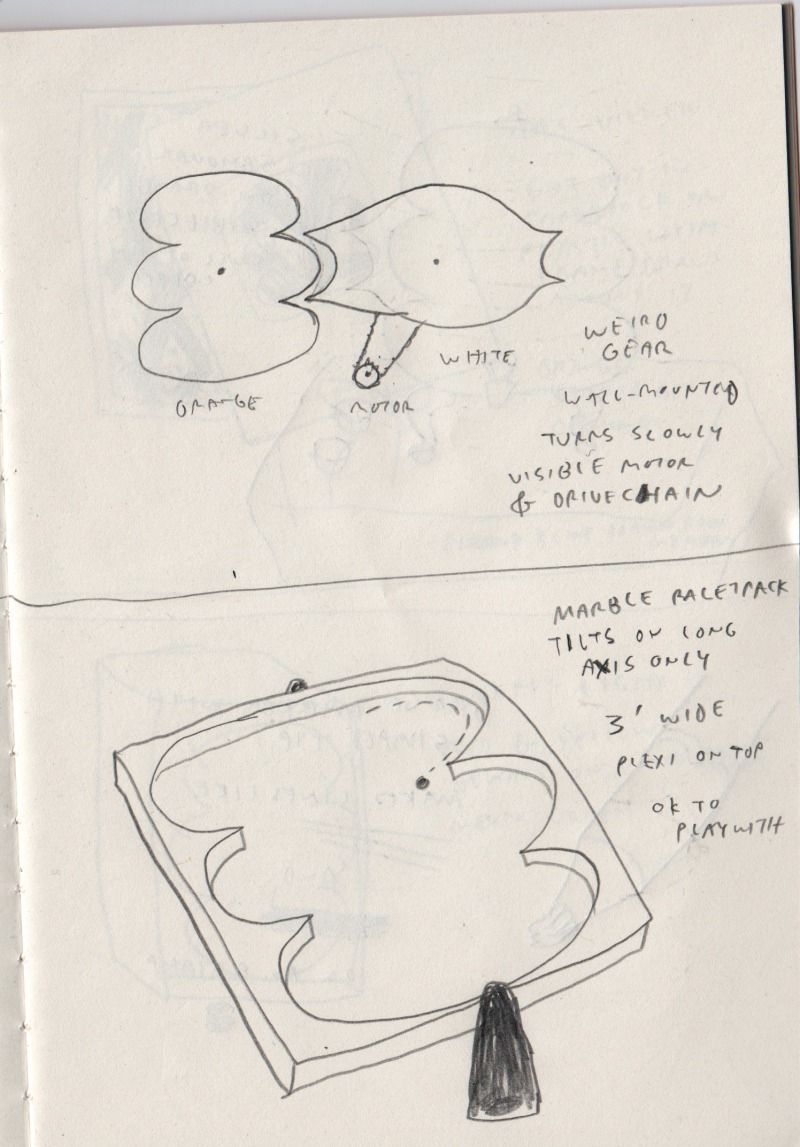 ORANGE
MOTOR
WHITE
WEIRD
GEAR
WALL-MOUNTED
TURNS SLOWLY
VISIBLE MOTOR
& DRIVECHAIN
MARBLE RACETRACK
TILTS ON LONG
AXIS ONLY
3' WIDE
PLEXI ON TOP
OK TO
PLAY WITH